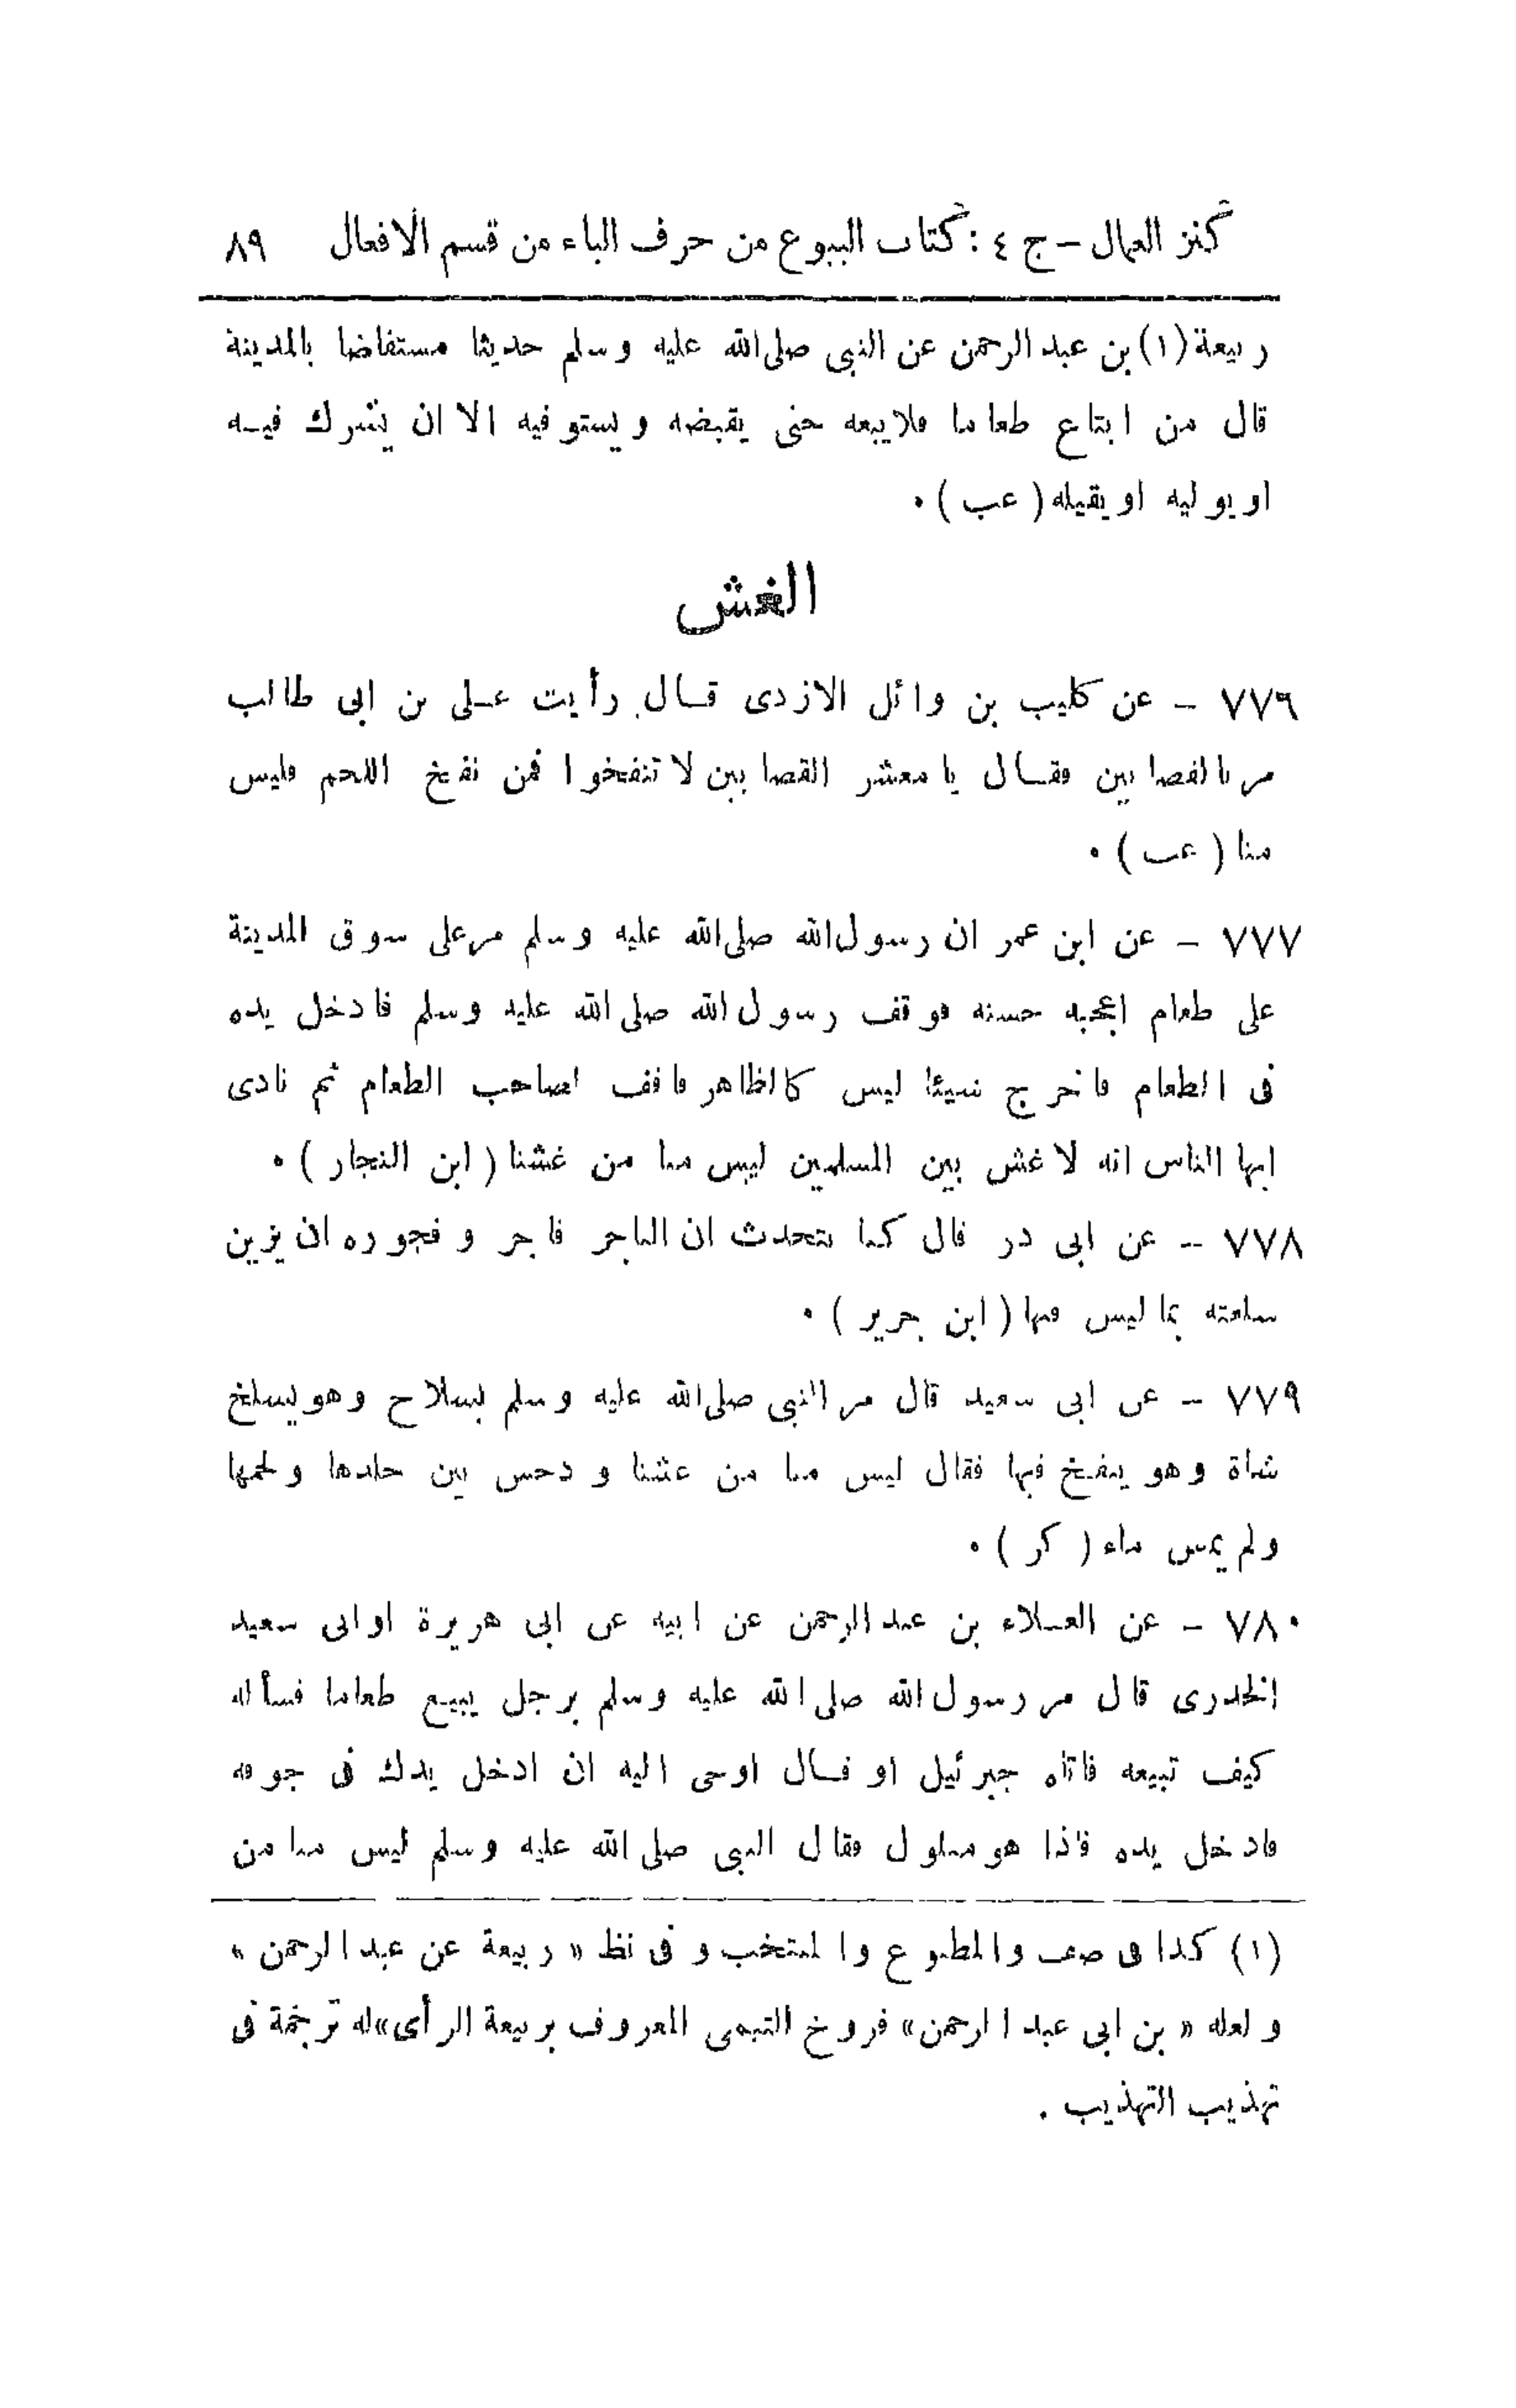 كنز العمال - ج ٤ : كتاب البيوع من حرف الباء من قسم الافعال ٨٩
ربيعة (١) بن عبد الرحمن عن النبى صلى الله عليه وسلم حديثا مستفاضا بالمدينة
قال من ابتاع طعاما فلايبعه حتى يقبضه ويستوفيه الا ان يشرك فيه
اويوليه اويقيله ( عب ) .
الغش
٧٧٦ - عن كليب بن وائل الازدى قال رأيت على بن ابى طالب
مر بالقصابين فقال يا معشر القصابين لا تنفخوا فمن نفخ اللحم فليس
منا ( عب ) .
٧٧٧ - عن ابن عمر ان رسول الله صلى الله عليه وسلم مر على سوق المدينة
على طعام اعجبه حسنه فوقف رسول الله صلى الله عليه وسلم فادخل يده
فى الطعام فاخرج شيئا ليس كالظاهر فافف لصاحب الطعام ثم نادى
ايها الناس انه لا غش بين المسلمين ليس منا من غشنا ( ابن النجار ) .
٧٧٨ - عن ابى ذر قال كنا نتحدث ان التاجر فاجر وفجوره ان يزين
سلعته بما ليس فيها ( ابن جرير ) .
٧٧٩ - عن ابى سعيد قال مر النبى صلى الله عليه وسلم بسلاح وهو يسلخ
شاة وهو ينفخ فيها فقال ليس منا من غشنا ودحس بين جلدها ولحمها
ولم يمس ماء ( كر ) .
٧٨٠ - عن العلاء بن عبد الرحمن عن ابيه عن ابى هريرة اوابى سعيد
الخدرى قال مر رسول الله صلى الله عليه وسلم برجل يبيع طعاما فسأله
كيف تبيعه فاتاه جبرئيل او قال اوحى اليه ان ادخل يدك فى جوفه
فادخل يده فاذا هو مبلول فقال النبى صلى الله عليه وسلم ليس منا من
(١) كذا فى صف والمطبوع والمنتخب وفى نظ « ربيعة عن عبد الرحمن »
ولعله « بن ابى عبد الرحمن» فروخ التيمى المعروف بربيعة الرأى» له ترجمة فى
تهذيب التهذيب .